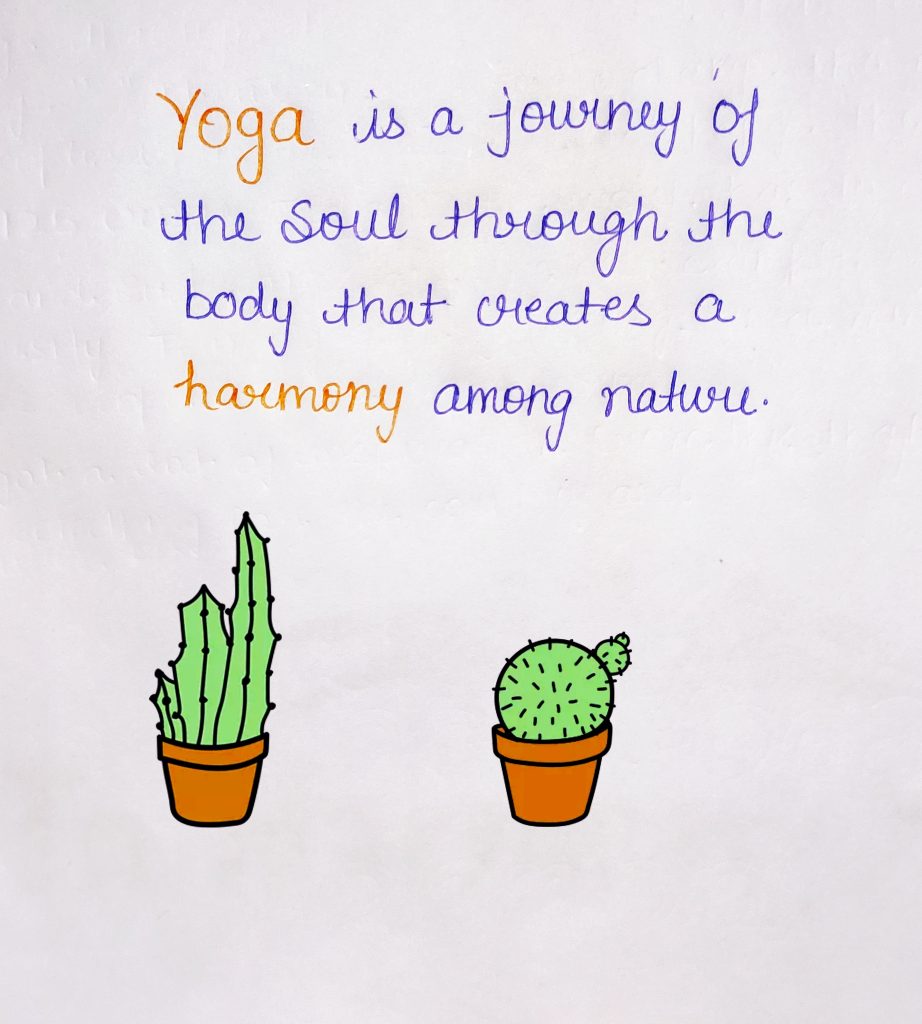 Yoga is a journey of
the Soul through the
body that creates a
harmony among nature.